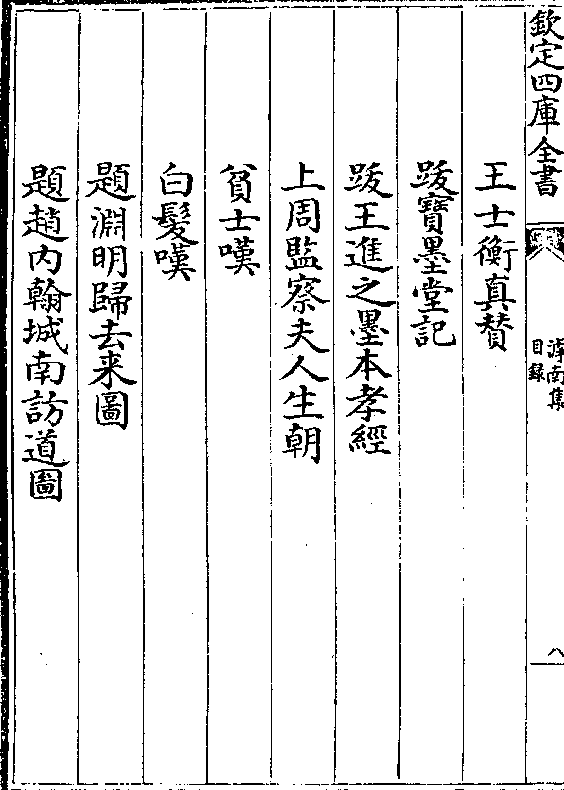 欽定四庫全書
滹南集
目錄
八
王士衡真賛
跋寶墨堂記
跋王進之墨本孝經
上周監察夫人生朝
貧士嘆
白髮嘆
題淵明歸去来圖
題趙内翰城南訪道圖